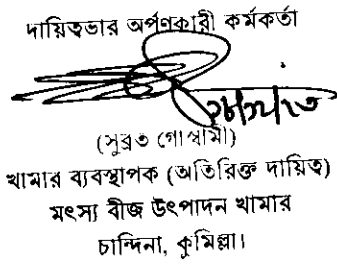 দায়িত্বভার অর্পণকারী কর্মকর্তা
২৮/১২/২৩
(সুব্রত গোস্বামী)
খামার ব্যবস্থাপক (অতিরিক্ত দায়িত্ব)
মৎস্য বীজ উৎপাদন খামার
চান্দিনা, কুমিল্লা।